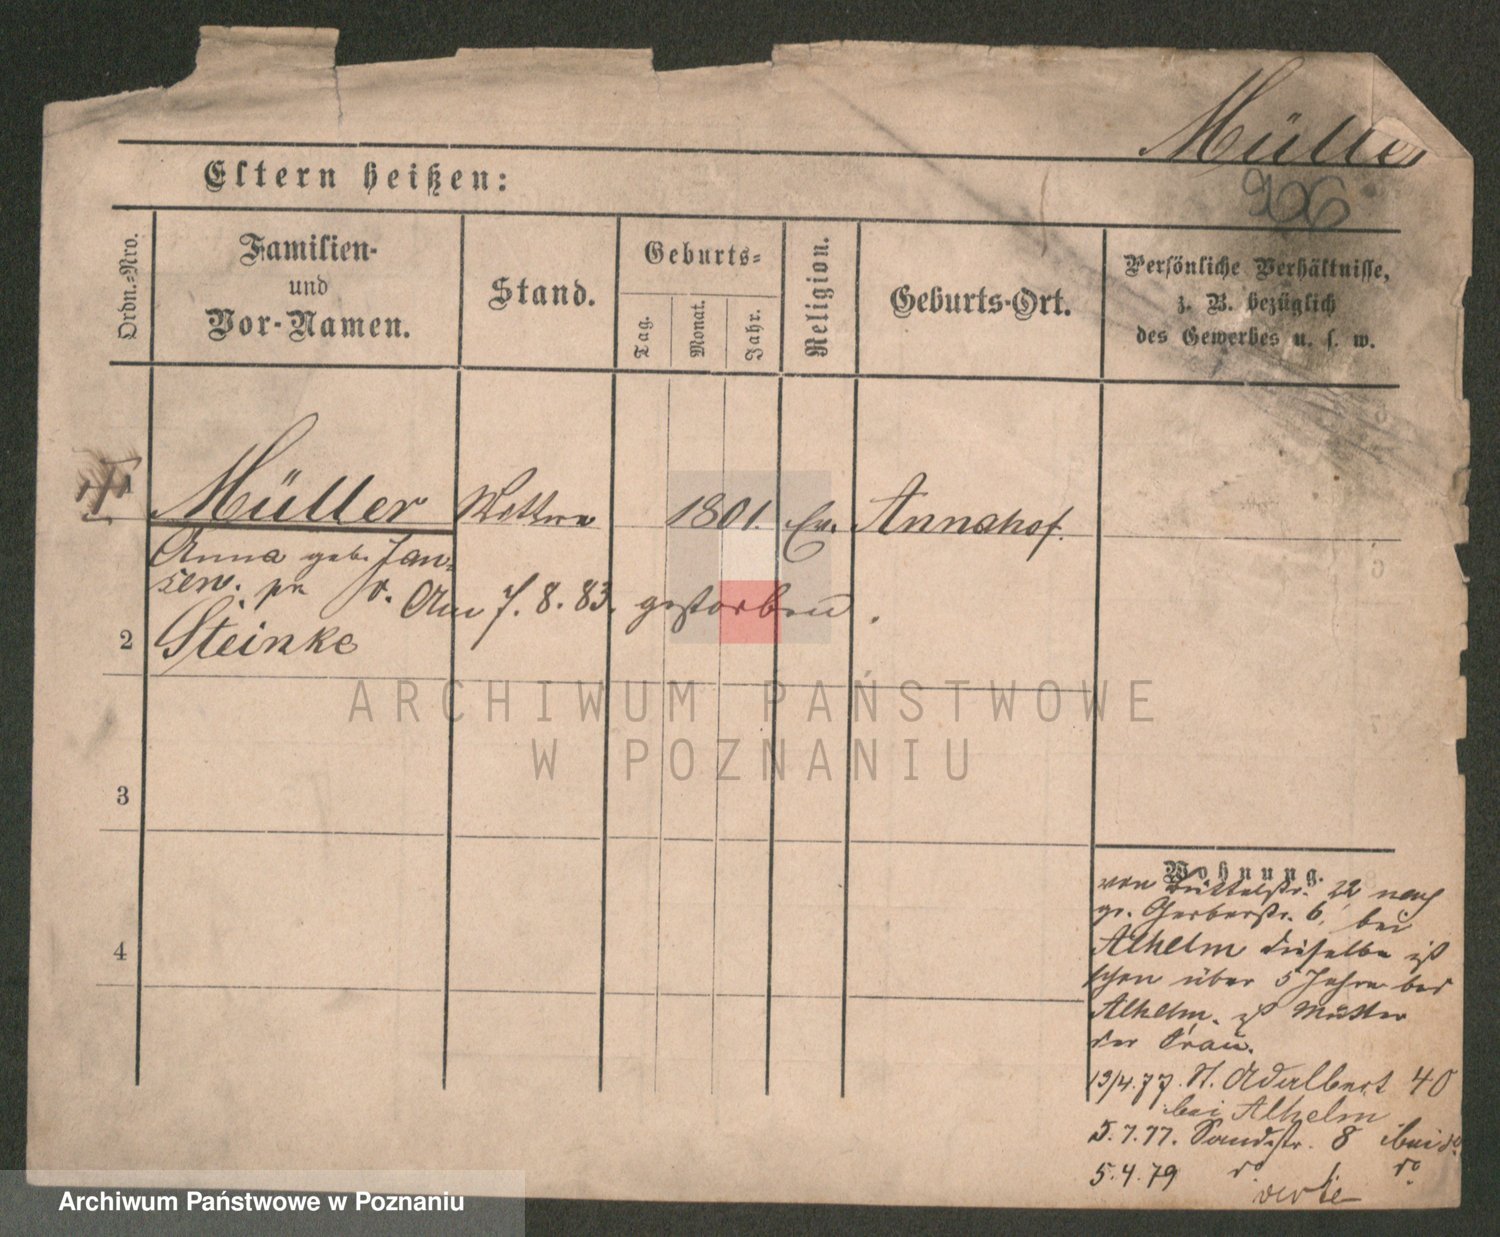 Müller
926
Eltern heißen:
Ordn.-Nro.
Familien-
und
Vor-Namen.
Stand.
Geburts-
Tag.
Monat.
Jahr.
Religion.
Geburts-Ort.
Persönliche Verhältnisse,
z. B. bezüglich
des Gewerbes u. s. w.
Müller Wittwe 1801. Ev. Annahof.
Anna geb. Jan-
sen.
Am 7. 8. 83. gestorben.
2 Steinke
3
4
ARCHIWUM PAŃSTWOWE
W POZNANIU
Wohnung.
von Büttelstr. 22 nach
gr. Gerberstr. 6. bei
Alhelm dieselbe ist
schon über 5 Jahre bei
Alhelm. ist Mutter
der Frau.
13/4.77. St. Adalbert 40
bei Alhelm
5.7.77. Sandstr. 8 ibei do
5.4.79 do do
verte
Archiwum Państwowe w Poznaniu